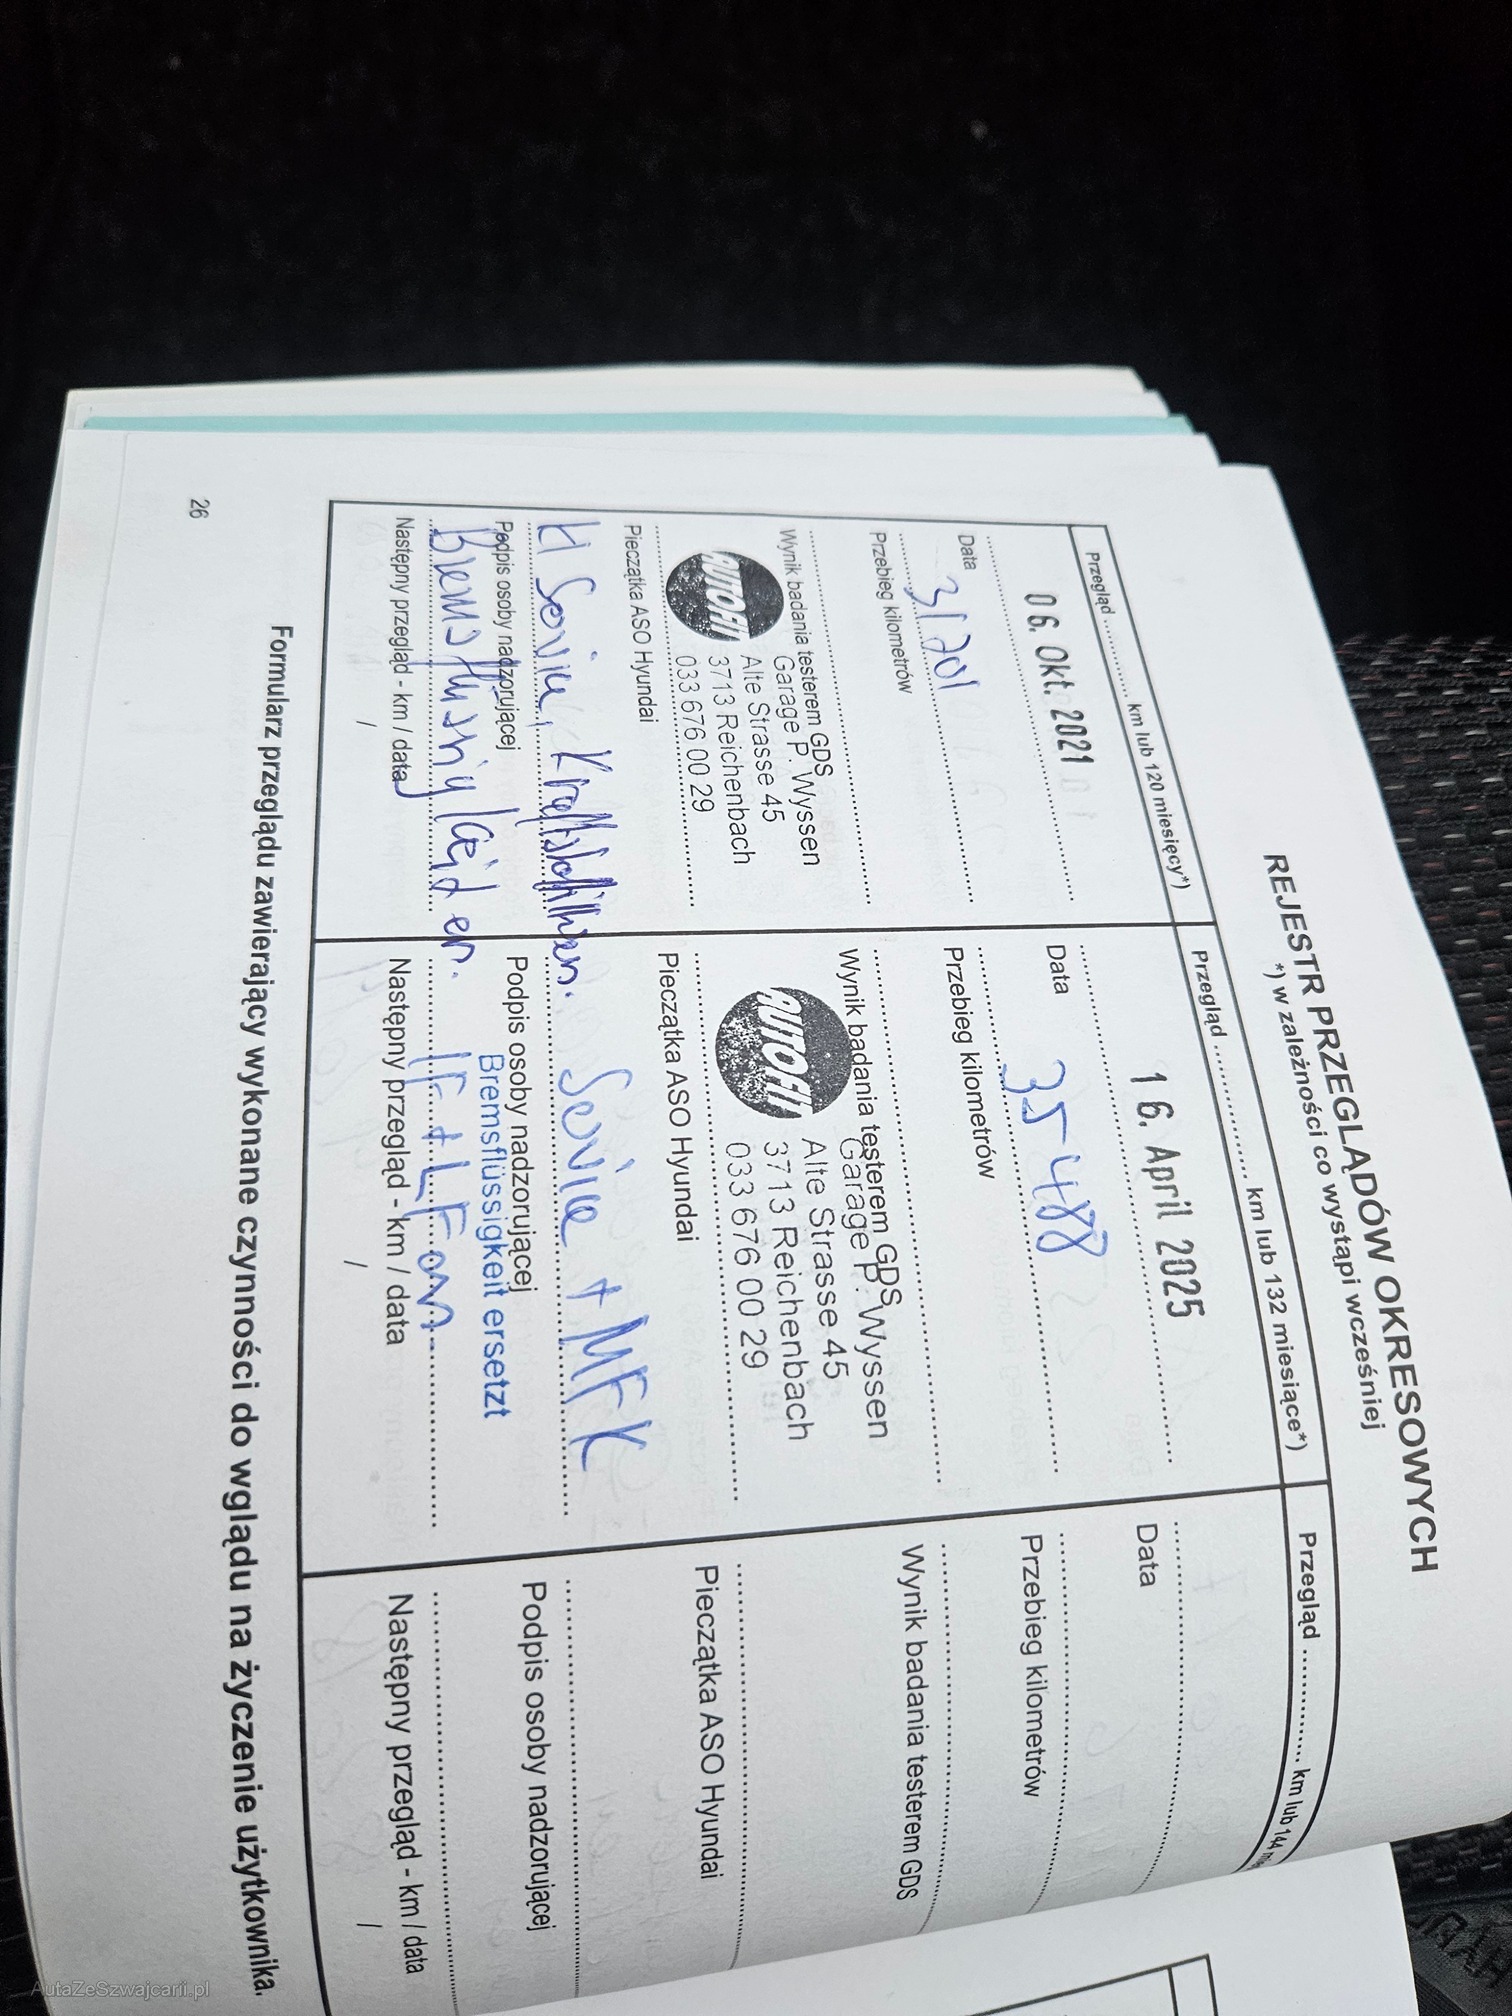 REJESTR PRZEGLĄDÓW OKRESOWYCH
*) w zależności co wystąpi wcześniej
Przegląd ............ km lub 120 miesięcy*)
06. Okt. 2021
Data
31201
Przebieg kilometrów
Wynik badania testerem GDS
AUTOFIT
Garage P. Wyssen
Alte Strasse 45
3713 Reichenbach
033 676 00 29
Pieczątka ASO Hyundai
Service,
Podpis osoby nadzorującej
Następny przegląd - km / data
/
Przegląd ............ km lub 132 miesiące*)
16. April 2025
Data
35488
Przebieg kilometrów
Wynik badania testerem GDS
AUTOFIT
Garage P. Wyssen
Alte Strasse 45
3713 Reichenbach
033 676 00 29
Pieczątka ASO Hyundai
Service + MFK
Podpis osoby nadzorującej
Bremsflüssigkeit ersetzt
IF + LF
Następny przegląd - km / data
/
Przegląd ............ km lub 144
Data
Przebieg kilometrów
Wynik badania testerem GDS
Pieczątka ASO Hyundai
Podpis osoby nadzorującej
Następny przegląd - km / data
/
Formularz przeglądu zawierający wykonane czynności do wglądu na życzenie użytkownika.
26
AutaZeSzwajcarii.pl